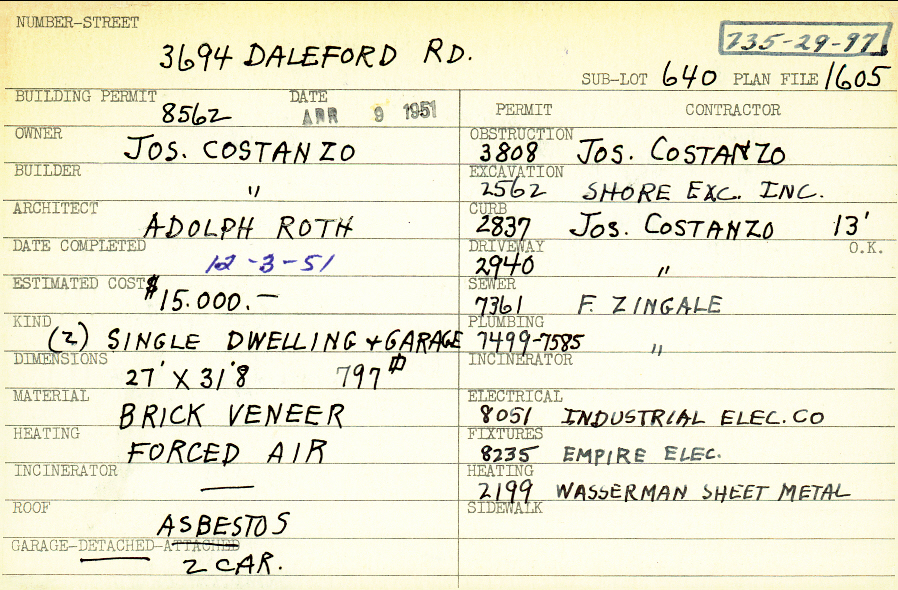 NUMBER-STREET
735-29-97
3694 DALEFORD RD.
SUB-LOT 640 PLAN FILE 1605
BUILDING PERMIT 8562 DATE APR 9 1951
PERMIT CONTRACTOR
OWNER JOS. COSTANZO
OBSTRUCTION 3808 JOS. COSTANZO
BUILDER "
EXCAVATION 2562 SHORE EXC. INC.
ARCHITECT ADOLPH ROTH
CURB 2837 JOS. COSTANZO 13'
DATE COMPLETED 12-3-51
DRIVEWAY 2940 " O.K.
ESTIMATED COST $15.000.—
SEWER 7361 F. ZINGALE
KIND (2) SINGLE DWELLING + GARAGE
PLUMBING 7499-7585 "
DIMENSIONS 27' X 31'8 797
INCINERATOR
MATERIAL BRICK VENEER
ELECTRICAL 8051 INDUSTRIAL ELEC. CO
HEATING FORCED AIR
FIXTURES 8235 EMPIRE ELEC.
INCINERATOR —
HEATING 2199 WASSERMAN SHEET METAL
ROOF ASBESTOS
SIDEWALK
GARAGE-DETACHED-ATTACHED
2 CAR.